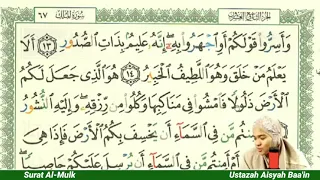 الجزء التاسع والعشرون سُورَةُ المُلْكِ ٦٧
وَأَسِرُّوا قَوْلَكُمْ أَوِ اجْهَرُوا بِهِ إِنَّهُ عَلِيمٌ بِذَاتِ الصُّدُورِ ١٣ أَلَا
يَعْلَمُ مَنْ خَلَقَ وَهُوَ اللَّطِيفُ الْخَبِيرُ ١٤ هُوَ الَّذِي جَعَلَ لَكُمُ
الْأَرْضَ ذَلُولًا فَامْشُوا فِي مَنَاكِبِهَا وَكُلُوا مِن رِّزْقِهِ وَإِلَيْهِ النُّشُورُ
مَّن فِي السَّمَاءِ أَن يَخْسِفَ بِكُمُ الْأَرْضَ
أَمِنتُم مَّن فِي السَّمَاءِ أَن يُرْسِلَ عَلَيْكُمْ حَاصِبًا
Surat Al-Mulk
Ustazah Aisyah Baa'in